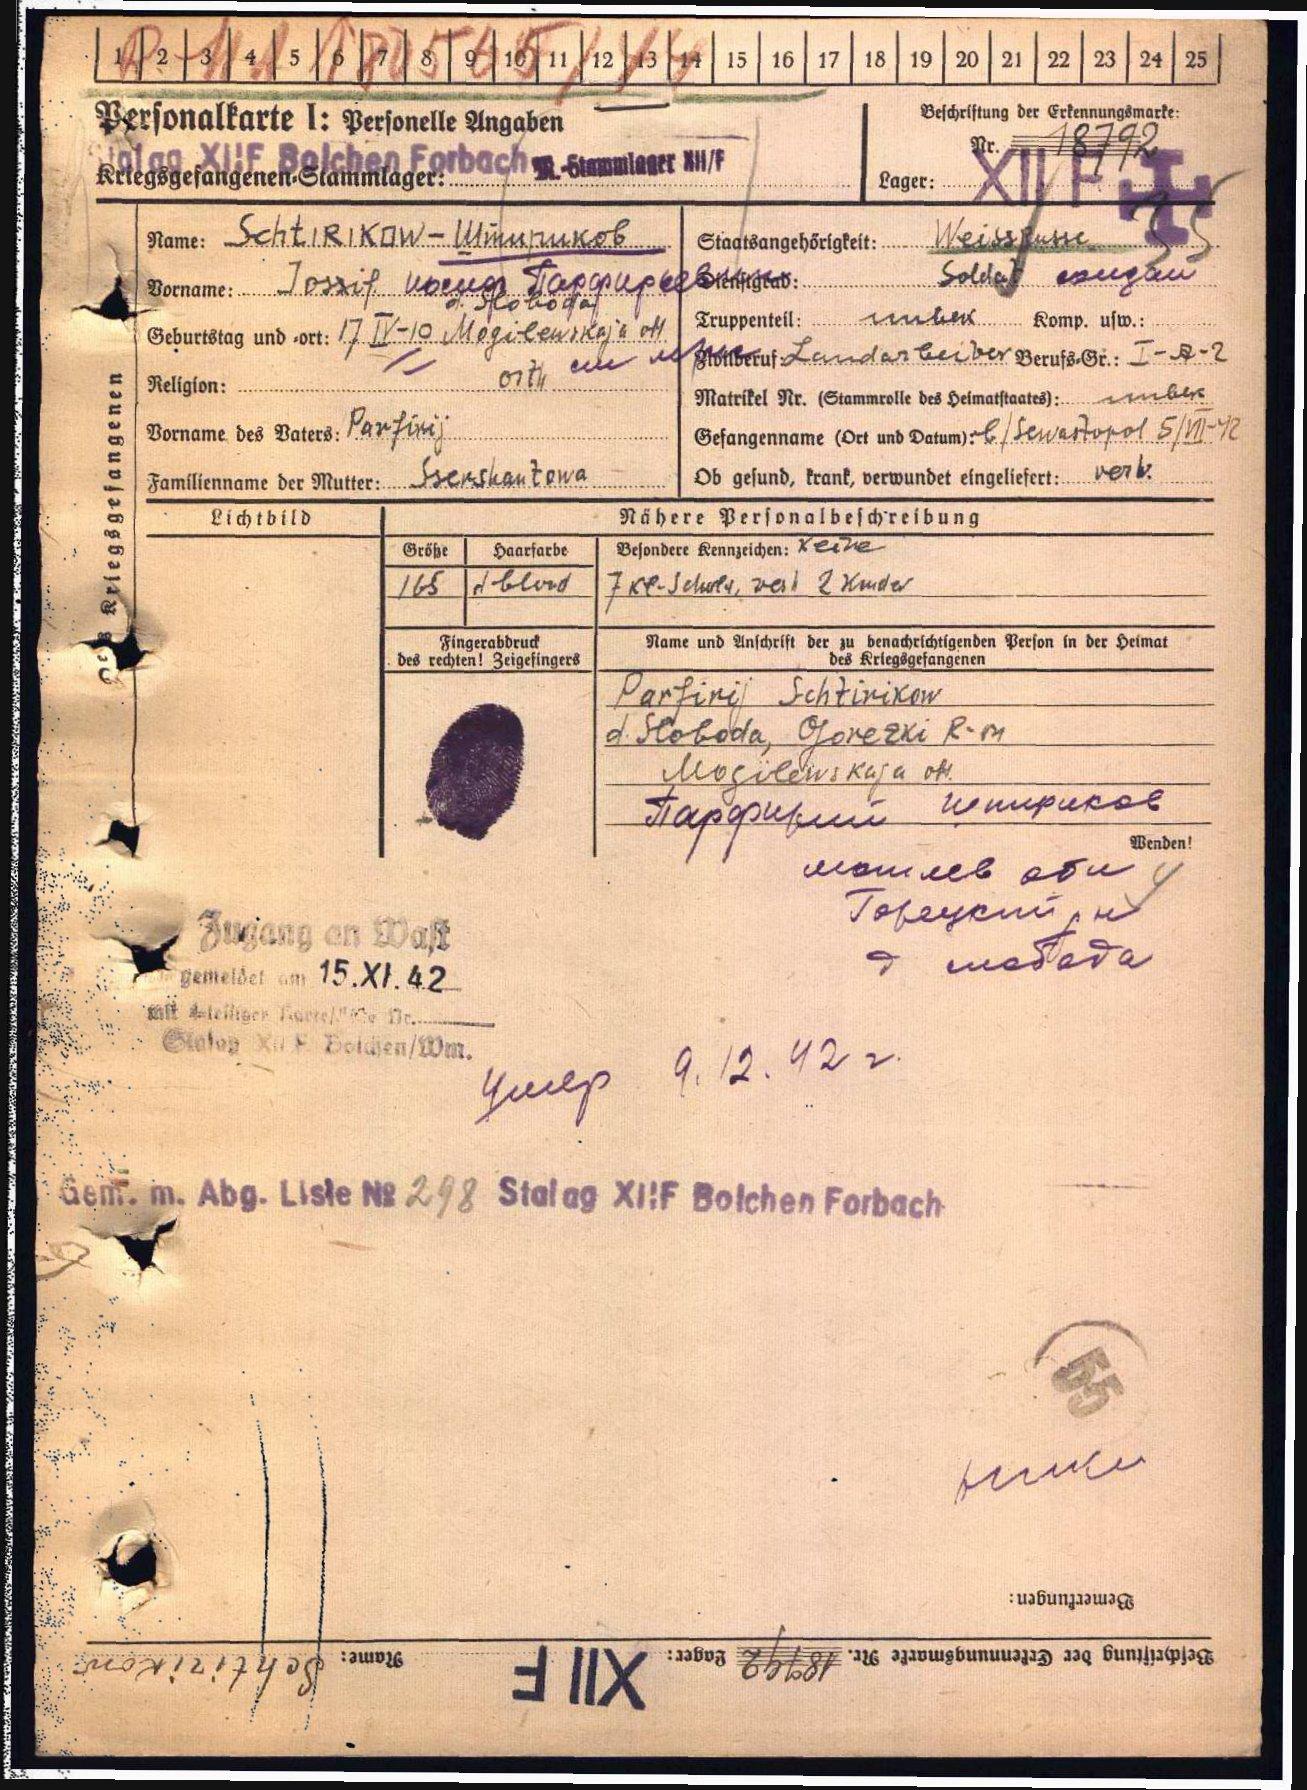 1 2 3 4 5 6 7 8 9 10 11 12 13 14 15 16 17 18 19 20 21 22 23 24 25
Personalkarte I: Personelle Angaben
Beschriftung der Erkennungsmarke:
Nr. 18792
Stalag XII F Bolchen Forbach M.-Stammlager XII/F
Kriegsgefangenen-Stammlager:
Lager: XII F
des Kriegsgefangenen
Name: Schtirikow – Штириков
Staatsangehörigkeit: Weissrusse
Vorname: Jossif Иосиф Парфирьевич
Dienstgrad: Soldat солдат
d. Sloboda
Geburtstag und -ort: 17 IV-10 Mogilewskaja obl
Truppenteil: unbek Komp. usw.:
Zivilberuf: Landarbeiter Berufs-Gr.: I-A-2
Religion: orth
Matrikel Nr. (Stammrolle des Heimatstaates): unbek
Vorname des Vaters: Parfirij
Gefangenname (Ort und Datum): b/Sewastopol 5/VII-42
Familienname der Mutter: Ssershantowa
Ob gesund, krank, verwundet eingeliefert: verw.
Lichtbild
Nähere Personalbeschreibung
Größe Haarfarbe Besondere Kennzeichen: keine
165 d-blond 7 kl-Schule, verh 2 Kinder
Fingerabdruck
des rechten! Zeigefingers
Name und Anschrift der zu benachrichtigenden Person in der Heimat
des Kriegsgefangenen
Parfirij Schtirikow
d. Sloboda, Gorezki R-on
Mogilewskaja obl.
Парфирий Штириков
Wenden!
могилев обл
Горецкий рн
д слабада
Zugang an Wast
gemeldet am 15.XI.42
mit 4-teiliger Karte/Liste Nr.
Stalag XII F Bolchen/Wm.
Умер 9.12.42 г.
Gem. m. Abg. Liste № 298 Stalag XII F Bolchen Forbach
55
Bemerkungen:
Beschriftung der Erkennungsmarke Nr. 18792 Lager: XII F Name: Schtirikow